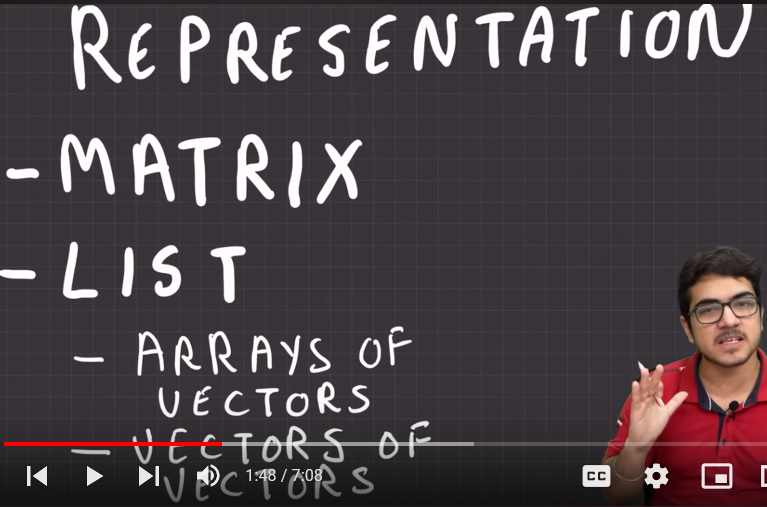 REPRESENTATION
- MATRIX
- LIST
- ARRAYS OF
VECTORS
- VECTORS OF
VECTORS
1:48 / 7:08
CC